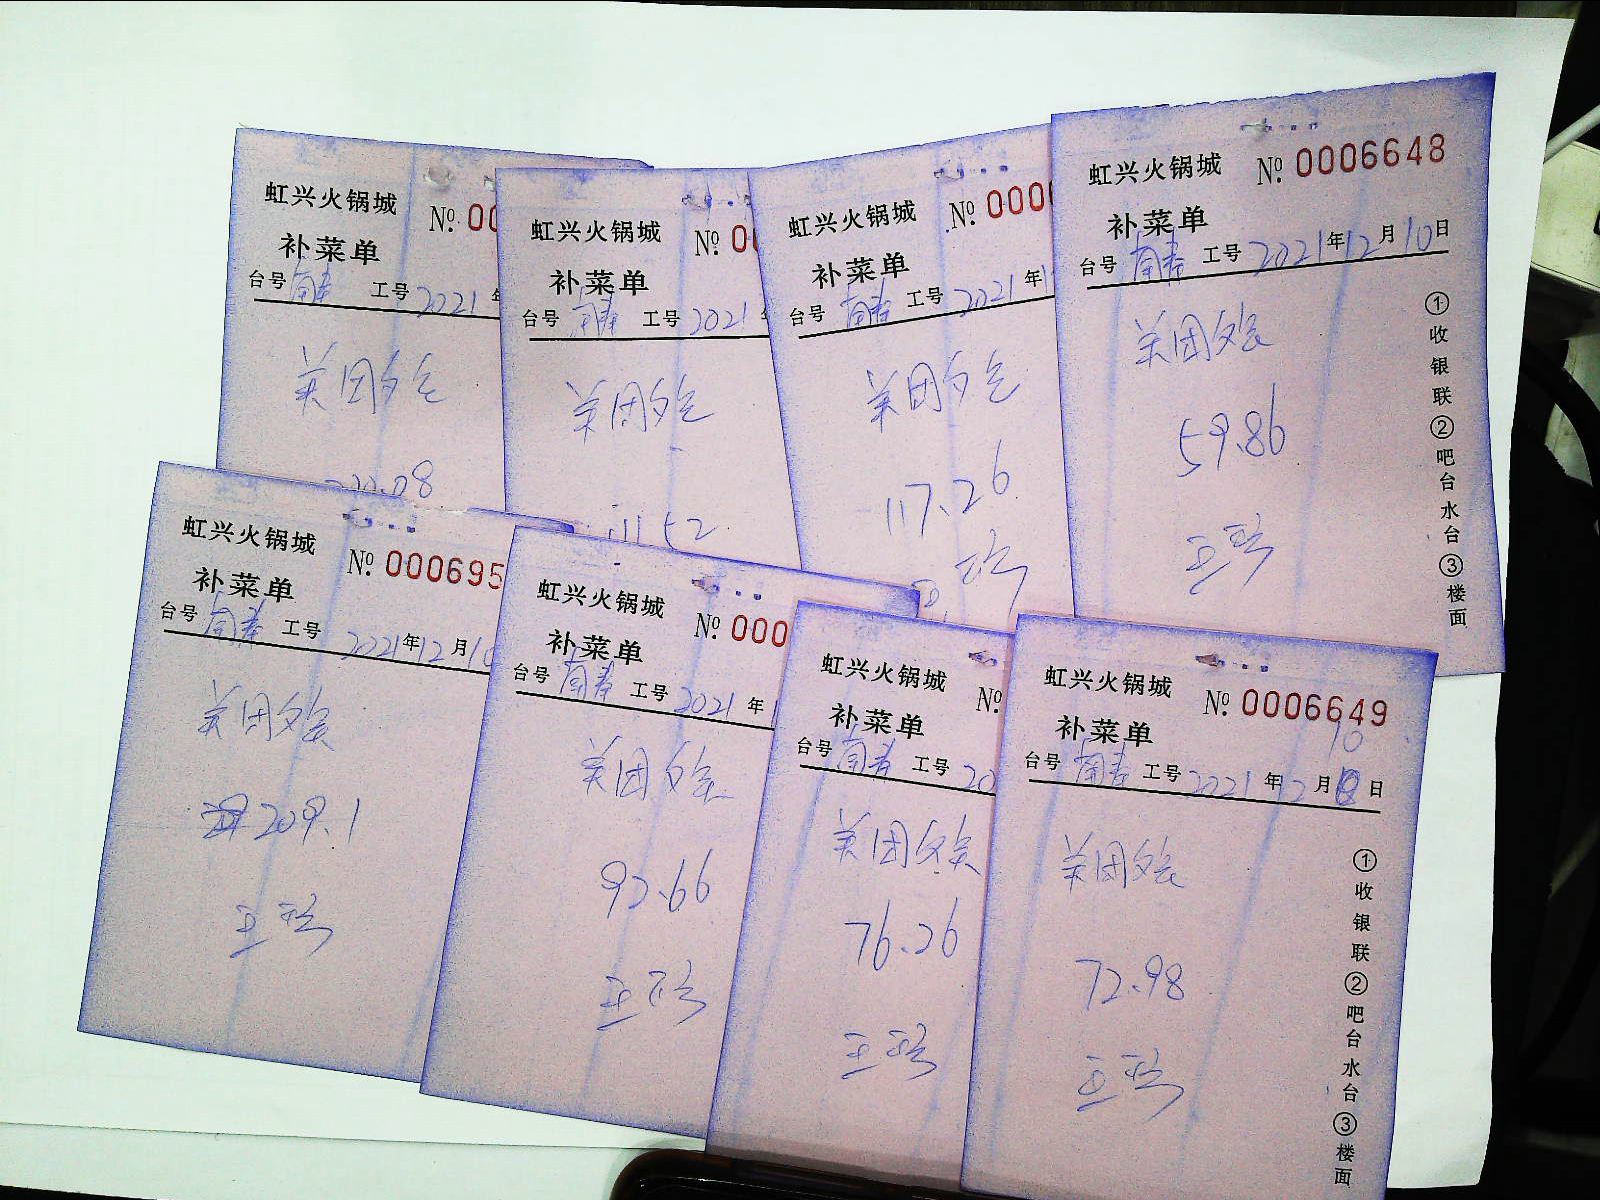 虹兴火锅城 №. 00
补菜单
台号 南春 工号 2021
美团外卖
虹兴火锅城 №. 0
补菜单
台号 南春 工号 2021
美团外卖
虹兴火锅城 №. 000
补菜单
台号 南春 工号 2021 年
美团外卖
117.26
虹兴火锅城 №. 0006648
补菜单
台号 南春 工号 2021 年 12 月 10 日
美团外卖
59.86
①收银联②吧台水台③楼面
虹兴火锅城 №. 000695
补菜单
台号 南春 工号 2021 年 12 月 10
美团外卖
209.1
虹兴火锅城 №. 000
补菜单
台号 南春 工号 2021 年
美团外卖
92.66
虹兴火锅城 №.
补菜单
台号 南春 工号 20
美团外卖
76.26
虹兴火锅城 №. 0006649
补菜单
10
台号 南春 工号 2021 年 12 月 日
美团外卖
72.98
①收银联②吧台水台③楼面